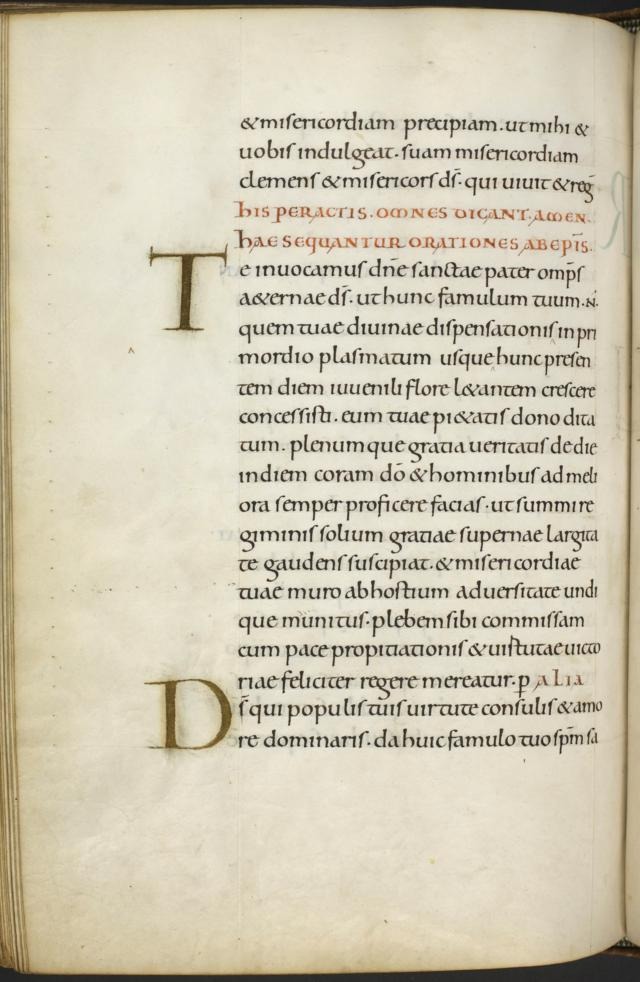 & misericordiam precipiam. ut mihi &
uobis indulgeat. suam misericordiam
clemens & misericors ds̄. qui uiuit & reg̅
his peractis. omnes dicant. amen.
hae sequantur orationes ab ep̄is.
Te inuocamus dn̄e sanctae pater omp̄s
a&ernae ds̄. ut hunc famulum tuum. N̄.
quem tuae diuinae dispensationis in pri
mordio plasmatum usque hunc presen
tem diem iuuenili flore l&antem crescere
concessisti. eum tuae pi&atis dono dita
tum. plenumque gratia ueritatis de die
in diem coram dō & hominibus ad meli
ora semper proficere facias. ut summi re
giminis solium gratiae supernae largita
te gaudens suscipiat. & misericordiae
tuae muro ab hostium aduersitate undi
que munitus. plebem sibi commissam
cum pace propitiationis & uirtutae uicto
riae feliciter regere mereatur. p̱ alia
Ds̄ qui populis tuis uirtute consulis & amo
re dominaris. da huic famulo tuo sp̄m sa